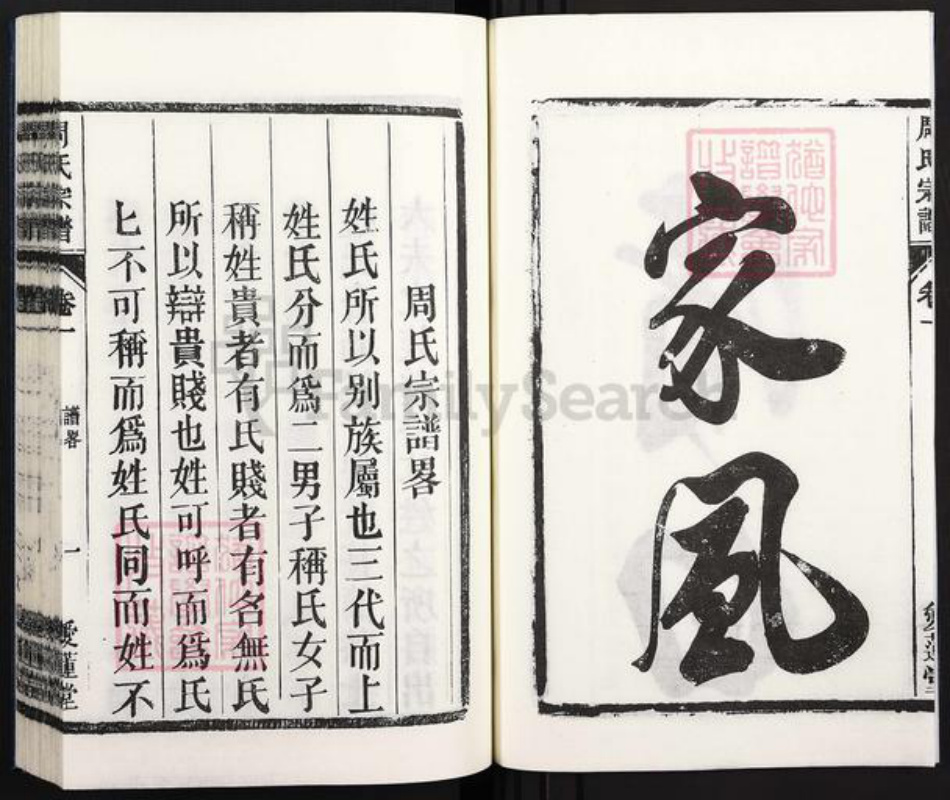 周氏宗譜
卷一
愛蓮堂
家風
周氏宗譜畧
姓氏所以別族屬也三代而上
姓氏分而爲二男子稱氏女子
稱姓貴者有氏賤者有名無氏
所以辯貴賤也姓可呼而爲氏
氏不可稱而爲姓氏同而姓不
周氏宗譜
卷一
譜畧
一
愛蓮堂
FamilySearch